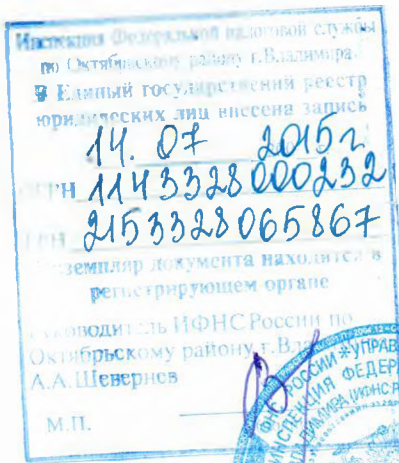 Инспекция Федеральной налоговой службы
по Октябрьскому району г.Владимира
В Единый государственный реестр
юридических лиц внесена запись
14. 07 2015г.
ОГРН 1143328000232
ГРН 2153328065867
Экземпляр документа находится в
регистрирующем органе
Руководитель ИФНС России по
Октябрьскому району г.Вла
А.А.Шевернев
М.П.